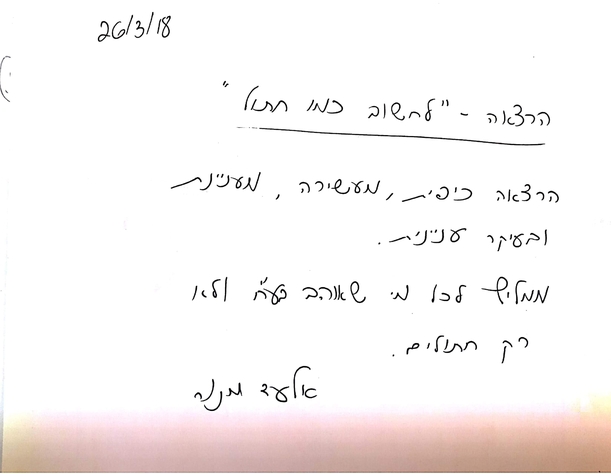 26/3/18
הרצאה - "לחשוב כמו חתול"
הרצאה כיפית, מעשירה, מעניינת
ובעיקר עניינית.
ממליץ לכל מי שאוהב בע"ח ולא
רק חתולים.
אלעד מנה